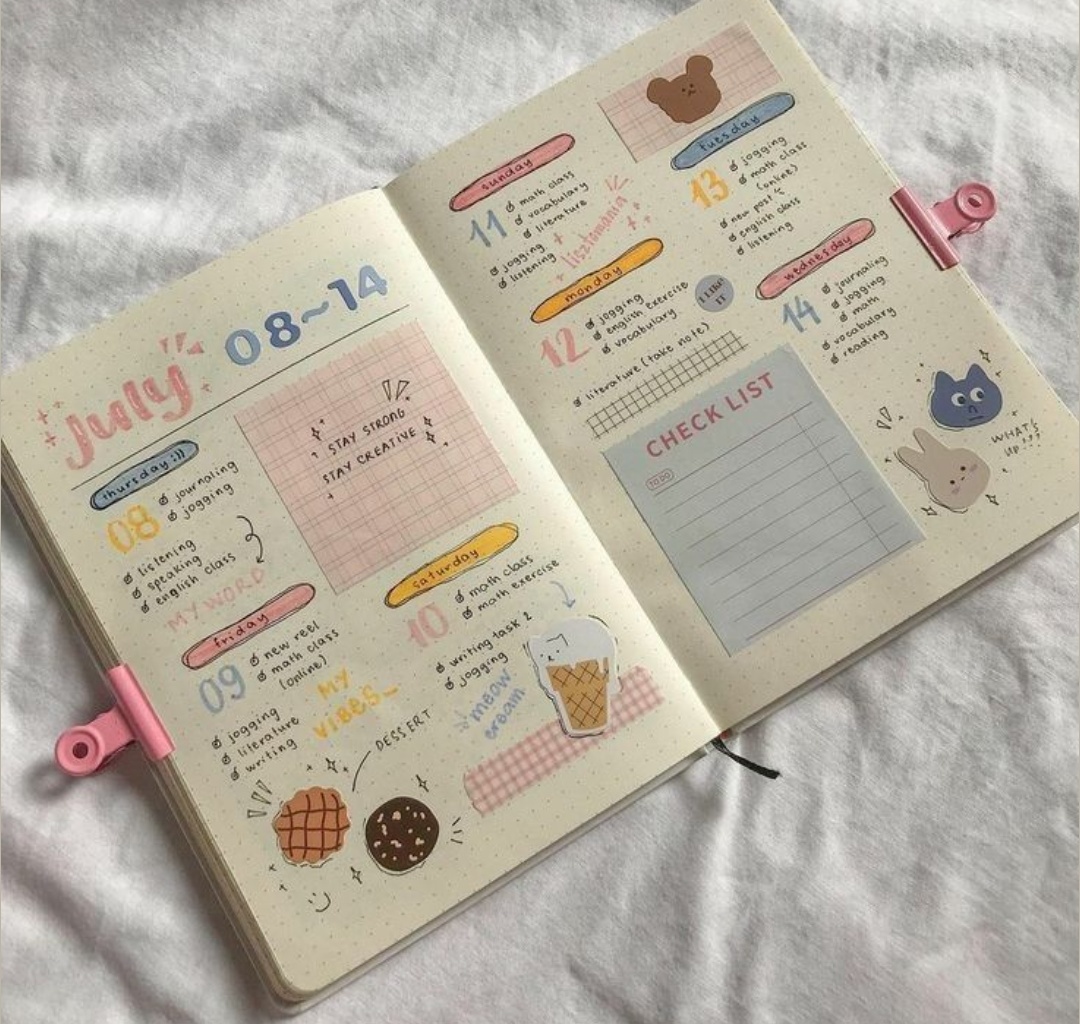 july 08~14
thursday :))
08
journaling
jogging
listening
speaking
english class
MY WORD
STAY STRONG
STAY CREATIVE
friday
09
new reel
math class
(online)
jogging
literature
writing
MY
VIBES_
DESSERT
saturday
10
math class
math exercise
writing task 2
jogging
meow
cream
sunday
11
math class
vocabulary
literature
jogging
listening
lisztomania
monday
12
jogging
english exercise
vocabulary
literature (take note)
I LIKE
IT
tuesday
13
jogging
math class
(online)
new post
english class
listening
wednesday
14
journaling
jogging
math
vocabulary
reading
CHECK LIST
TO DO
WHAT'S
UP???